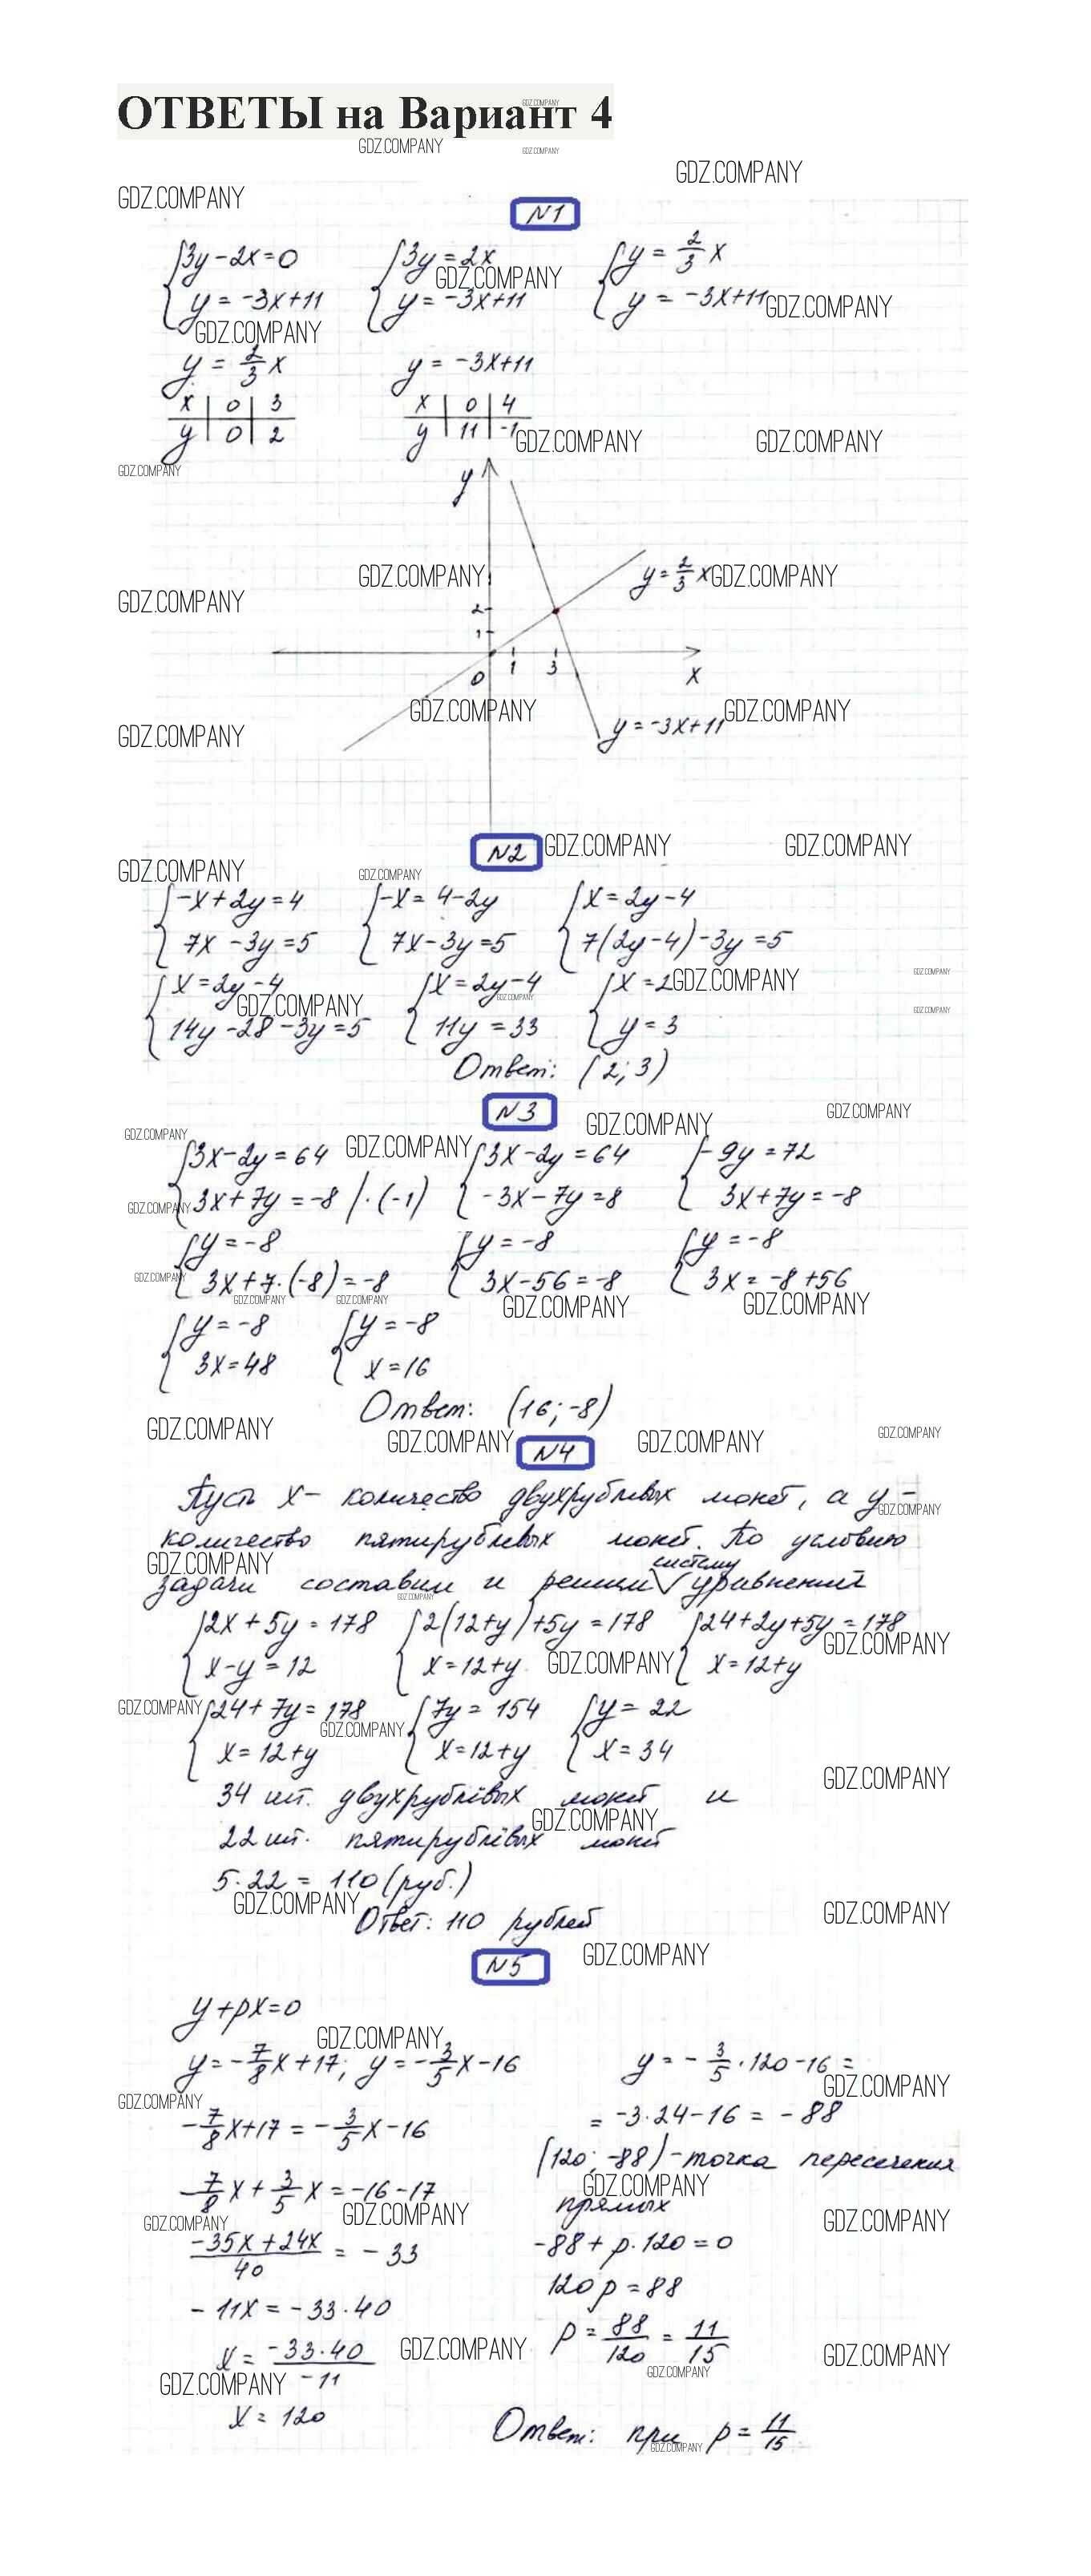 ОТВЕТЫ на Вариант 4
GDZ.COMPANY
N1
{3y-2x=0 {3y=2x {y=2/3 x
{y=-3x+11 {y=-3x+11 {y=-3x+11
y=2/3 x y=-3x+11
x | 0 | 3 x | 0 | 4
y | 0 | 2 y | 11 | -1
y
y=2/3 x
2
1
0 1 3 x
y=-3x+11
N2
{-x+2y=4 {-x=4-2y {x=2y-4
{7x-3y=5 {7x-3y=5 {7(2y-4)-3y=5
{x=2y-4 {x=2y-4 {x=2
{14y-28-3y=5 {11y=33 {y=3
Ответ: (2; 3)
N3
{3x-2y=64 {3x-2y=64 {-9y=72
{3x+7y=-8 |·(-1) {-3x-7y=8 {3x+7y=-8
{y=-8 {y=-8 {y=-8
{3x+7·(-8)=-8 {3x-56=-8 {3x=-8+56
{y=-8 {y=-8
{3x=48 {x=16
Ответ: (16; -8)
N4
Пусть x- количество двухрублевых монет, а y-
количество пятирублевых монет. По условию
задачи составим и решим систему уравнений
{2x+5y=178 {2(12+y)+5y=178 {24+2y+5y=178
{x-y=12 {x=12+y {x=12+y
{24+7y=178 {7y=154 {y=22
{x=12+y {x=12+y {x=34
34 шт. двухрублёвых монет и
22 шт. пятирублёвых монет
5·22=110 (руб.)
Ответ: 110 рублей
N5
y+px=0
y=-7/8 x+17; y=-3/5 x-16
-7/8 x+17=-3/5 x-16
-7/8 x+3/5 x=-16-17
(-35x+24x)/40=-33
-11x=-33·40
x=(-33·40)/-11
x=120
y=-3/5·120-16=
=-3·24-16=-88
(120; -88)-точка пересечения
прямых
-88+p·120=0
120p=88
p=88/120=11/15
Ответ: при p=11/15